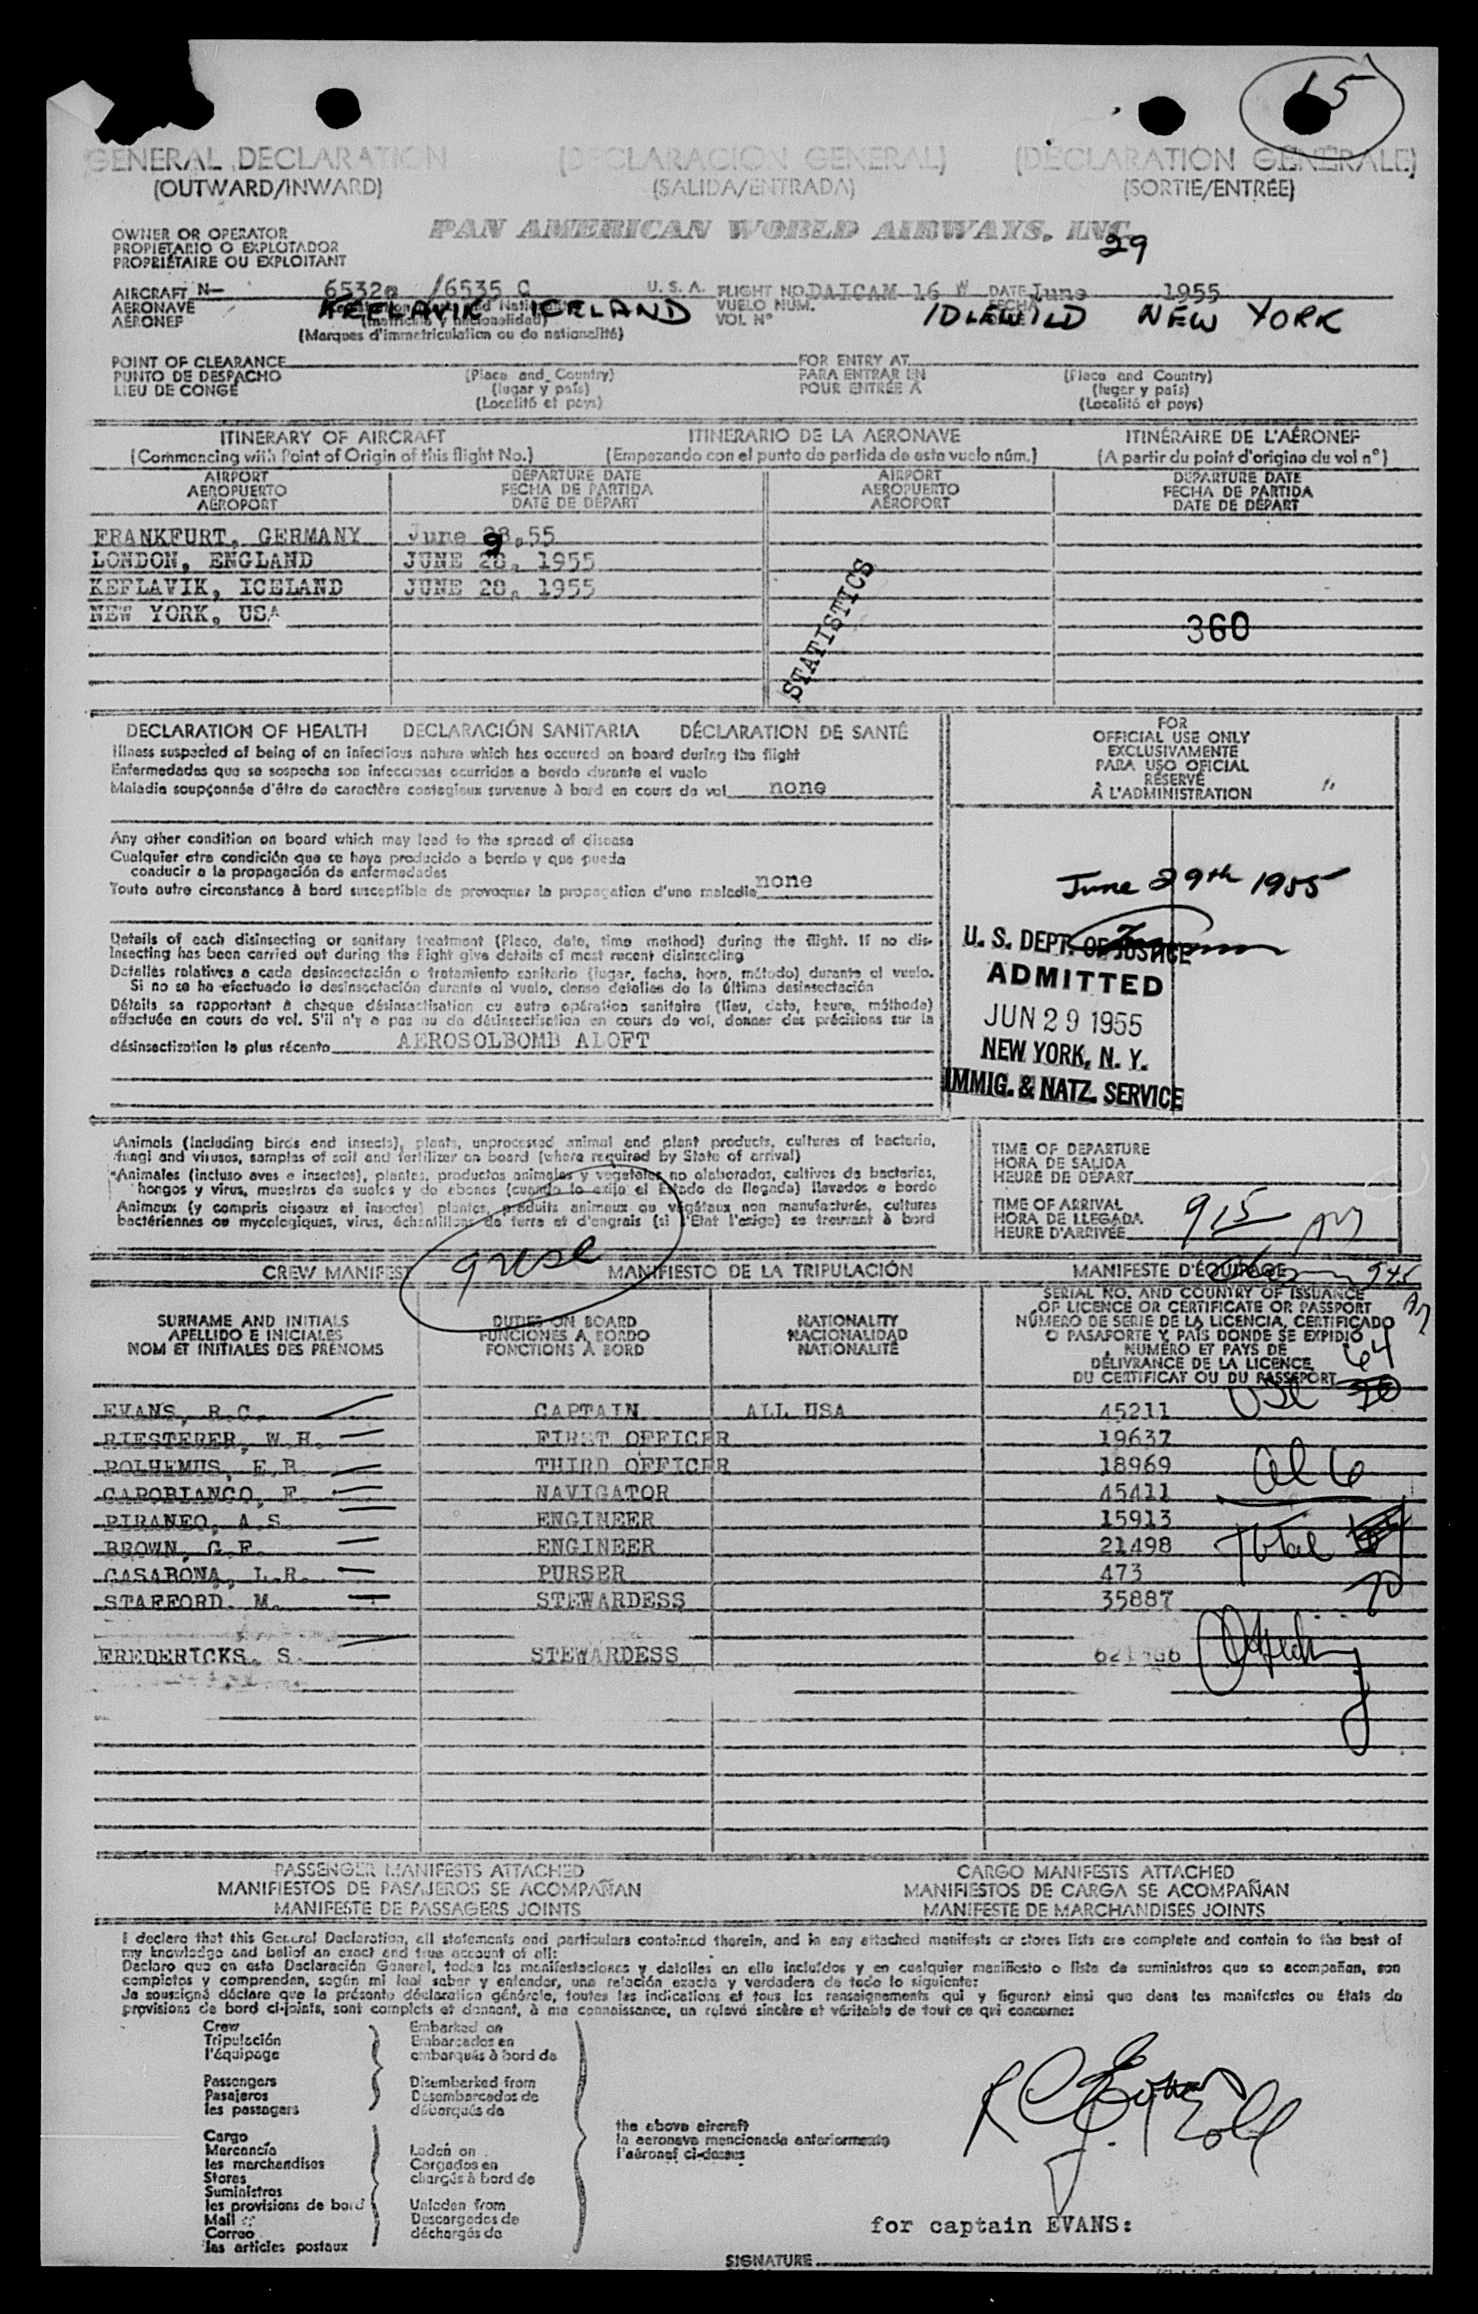 15
GENERAL DECLARATION (DECLARACION GENERAL) (DÉCLARATION GÉNÉRALE)
(OUTWARD/INWARD) (SALIDA/ENTRADA) (SORTIE/ENTRÉE)
OWNER OR OPERATOR
PROPIETARIO O EXPLOTADOR
PROPRIÉTAIRE OU EXPLOITANT
PAN AMERICAN WORLD AIRWAYS, INC.
29
AIRCRAFT N- /6535 C U. S. A. FLIGHT NO. DAICAM 16 W DATE June 1955
AERONAVE VUELO NUM. FECHA
AÉRONEF VOL Nº
KEFLAVIK ICELAND IDLEWILD NEW YORK
(matrícula y nacionalidad)
(Marques d'immatriculation ou de nationalité)
POINT OF CLEARANCE FOR ENTRY AT
PUNTO DE DESPACHO (Place and Country) PARA ENTRAR EN (Place and Country)
LIEU DE CONGÉ (lugar y país) POUR ENTRÉE À (lugar y país)
(Localité et pays) (Localité et pays)
ITINERARY OF AIRCRAFT ITINERARIO DE LA AERONAVE ITINÉRAIRE DE L'AÉRONEF
(Commencing with Point of Origin of this flight No.) (Empezando con el punto de partida de este vuelo núm.) (A partir du point d'origine du vol nº)
AIRPORT DEPARTURE DATE AIRPORT DEPARTURE DATE
AEROPUERTO FECHA DE PARTIDA AEROPUERTO FECHA DE PARTIDA
AÉROPORT DATE DE DÉPART AÉROPORT DATE DE DÉPART
FRANKFURT, GERMANY June 28,55
9
LONDON, ENGLAND JUNE 28, 1955
KEFLAVIK, ICELAND JUNE 28, 1955
NEW YORK, USA
STATISTICS
360
DECLARATION OF HEALTH DECLARACIÓN SANITARIA DÉCLARATION DE SANTÉ
Illness suspected of being of an infectious nature which has occured on board during the flight
Enfermedades que se sospecha son infecciosas ocurridas a bordo durante el vuelo
Maladie soupçonnée d'être de caractère contagieux survenue à bord en cours de vol none
Any other condition on board which may lead to the spread of disease
Cualquier otra condición que se haya producido a bordo y que pueda
conducir a la propagación de enfermedades
Toute autre circonstance à bord susceptible de provoquer la propagation d'une maladie none
Details of each disinsecting or sanitary treatment (Place, date, time method) during the flight. If no dis-
insecting has been carried out during the flight give details of most recent disinsecting
Detalles relativos a cada desinsectación o tratamiento sanitario (lugar, fecha, hora, método) durante el vuelo.
Si no se ha efectuado la desinsectación durante el vuelo, dense detalles de la última desinsectación
Détails se rapportant à chaque désinsectisation ou autre opération sanitaire (lieu, date, heure, méthode)
effectuée en cours de vol. S'il n'y a pas eu de désinsectisation en cours de vol, donner des précisions sur la
désinsectisation la plus récente AEROSOLBOMB ALOFT
FOR
OFFICIAL USE ONLY
EXCLUSIVAMENTE
PARA USO OFICIAL
RÉSERVÉ
À L'ADMINISTRATION
June 29th 1955
U. S. DEPT. OF JUSTICE
ADMITTED
JUN 29 1955
NEW YORK, N. Y.
IMMIG. & NATZ. SERVICE
Animals (including birds and insects), plants, unprocessed animal and plant products, cultures of bacteria,
fungi and viruses, samples of soil and fertilizer on board (where required by State of arrival)
Animales (incluso aves e insectos), plantas, productos animales y vegetales no elaborados, cultivos de bacterias,
hongos y virus, muestras de suelos y de abonos (cuando lo exija el Estado de llegada) llevados a bordo
Animaux (y compris oiseaux et insectes) plantes, produits animaux ou végétaux non manufacturés, cultures
bactériennes ou mycologiques, virus, échantillons de terre et d'engrais (si l'Etat l'exige) se trouvant à bord
TIME OF DEPARTURE
HORA DE SALIDA
HEURE DE DÉPART
TIME OF ARRIVAL
HORA DE LLEGADA
HEURE D'ARRIVÉE
915 AM
945 AM
9 USC
CREW MANIFEST MANIFIESTO DE LA TRIPULACIÓN MANIFESTE D'ÉQUIPAGE
SURNAME AND INITIALS DUTIES ON BOARD NATIONALITY
APELLIDO E INICIALES FUNCIONES A BORDO NACIONALIDAD
NOM ET INITIALES DES PRÉNOMS FONCTIONS À BORD NATIONALITÉ
SERIAL NO. AND COUNTRY OF ISSUANCE
OF LICENCE OR CERTIFICATE OR PASSPORT
NÚMERO DE SERIE DE LA LICENCIA, CERTIFICADO
O PASAPORTE Y PAÍS DONDE SE EXPIDIÓ
NUMÉRO ET PAYS DE
DÉLIVRANCE DE LA LICENCE
DU CERTIFICAT OU DU PASSEPORT
64
EVANS, R.C. CAPTAIN ALL USA 45211 USC
RIESTERER, W.H. FIRST OFFICER 19637
POLHEMUS, E.B. THIRD OFFICER 18969 al 6
CAPOBIANCO, F. NAVIGATOR 45411
PIRANEO, A.S. ENGINEER 15913
BROWN, G.F. ENGINEER 21498 Total
CASABONA, L.R. PURSER 473 70
STAFFORD, M. STEWARDESS 35887
FREDERICKS, S. STEWARDESS
PASSENGER MANIFESTS ATTACHED CARGO MANIFESTS ATTACHED
MANIFIESTOS DE PASAJEROS SE ACOMPAÑAN MANIFIESTOS DE CARGA SE ACOMPAÑAN
MANIFESTE DE PASSAGERS JOINTS MANIFESTE DE MARCHANDISES JOINTS
I declare that this General Declaration, all statements and particulars contained therein, and in any attached manifests or stores lists are complete and contain to the best of
my knowledge and belief an exact and true account of all:
Declaro que en esta Declaración General, todas las manifestaciones y detalles en ella incluídos y en cualquier manifiesto o lista de suministros que se acompañan, son
completos y comprenden, según mi leal saber y entender, una relación exacta y verdadera de todo lo siguiente:
Je soussigné déclare que la présente déclaration générale, toutes les indications et tous les renseignements qui y figurent ainsi que dans les manifestes ou états de
provisions de bord ci-joints, sont complets et donnent, à ma connaissance, un relevé sincère et véritable de tout ce qui concerne:
Crew Embarked on
Tripulación Embarcados en
l'équipage embarqués à bord de
Passengers Disembarked from
Pasajeros Desembarcados de
les passagers débarqués de
the above aircraft
la aeronave mencionada anteriormente
l'aéronef ci-dessus
Cargo
Mercancía Laden on
les marchandises Cargados en
Stores chargés à bord de
Suministros
les provisions de bord Unladen from
Mail Descargados de
Correo déchargés de
les articles postaux
for captain EVANS:
SIGNATURE